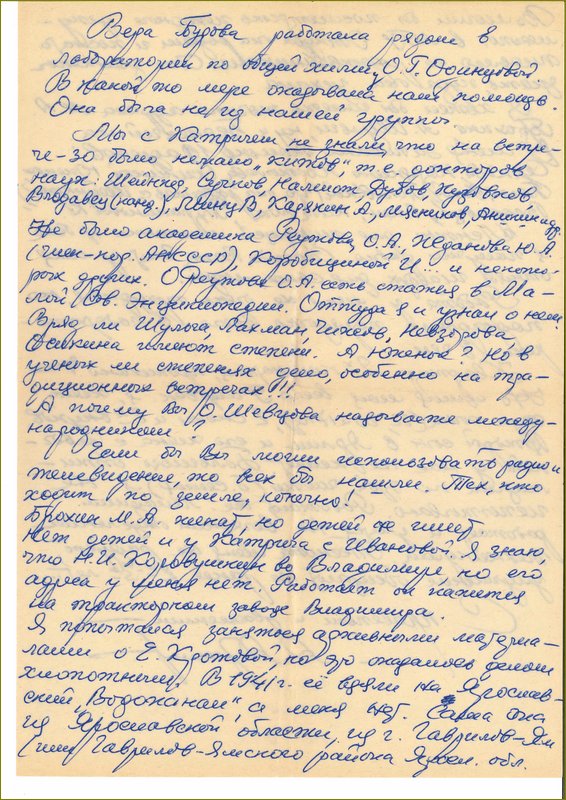 Вера Будова работала рядом в
лаборатории по общей химии у О.Г. Осинцовой.
В какой то мере оказывала нам помощь.
Она была не из нашей группы.
Мы с Катричем не знали что на встре-
че-30 было немало "китов", т.е. докторов
наук: Шейнкер, Налимов, Дубов,
Влодавец (канд.), Минц В, Карякин А., Мясников,
Не было академика Реутова О.А., Жданова Ю.А.
(член-кор. АНСССР), Коробицыной И... и некото-
рых других. О Реутове О.А. есть статья в Ма-
лой Сов. Энциклопедии. Оттуда я и узнал о нем.
Вряд ли Шулыга, Лахман,
Осикина имеют степени. А Южный? Но в
ученых ли степенях дело, особенно на тра-
диционных встречах!!!
А почему Вы О. Шевцова называете между-
народником?
Если бы Вы могли использовать радио и
телевидение, то всех бы нашли. Тех, кто
ходит по земле, конечно!
Брохин М.А. женат, но детей не имеет
Нет детей и у Катрича с Ивановой. Я знаю,
что Н.И. Коровушкин во Владимире но его
адреса у меня нет. Работает он кажется
на тракторном заводе Владимира.
Я попытался заняться архивными материа-
лами о Е. Кротовой, но это оказалось делом
хлопотным. В 1941 г. её взяли на Ярослав-
ский "Водоканал", а меня нет. Сама она
из Ярославской области, из г. Гаврилов-Ям
(или Гаврилов-Ямского района Яросл. обл.